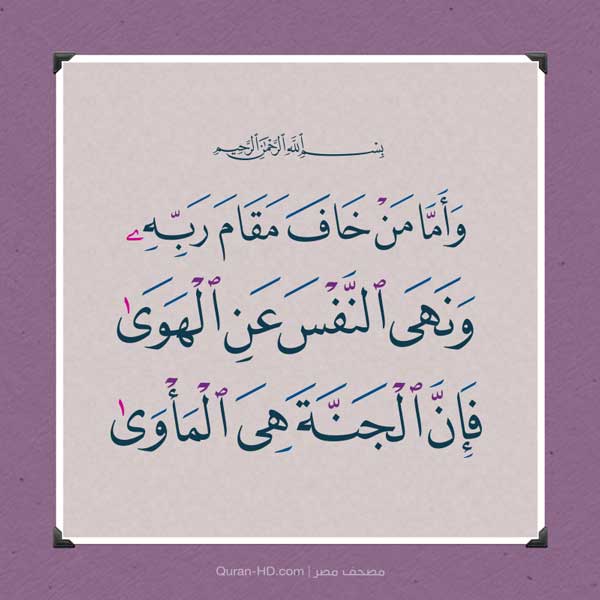 بِسْمِ ٱللَّهِ ٱلرَّحْمَٰنِ ٱلرَّحِيمِ
وَأَمَّا مَنْ خَافَ مَقَامَ رَبِّهِۦ
وَنَهَى ٱلنَّفْسَ عَنِ ٱلْهَوَىٰ
فَإِنَّ ٱلْجَنَّةَ هِىَ ٱلْمَأْوَىٰ
مصحف مصر | Quran-HD.com